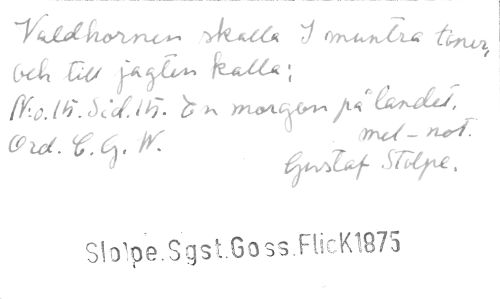 Valdhornen skalla I muntra toner,
och till jagten kalla;
N:o. 15. Sid. 15. En morgon på landet.
mel-not.
Ord. C. G. W.
Gustaf Stolpe.
Slolpe.Sgst.Goss.FlicK1875